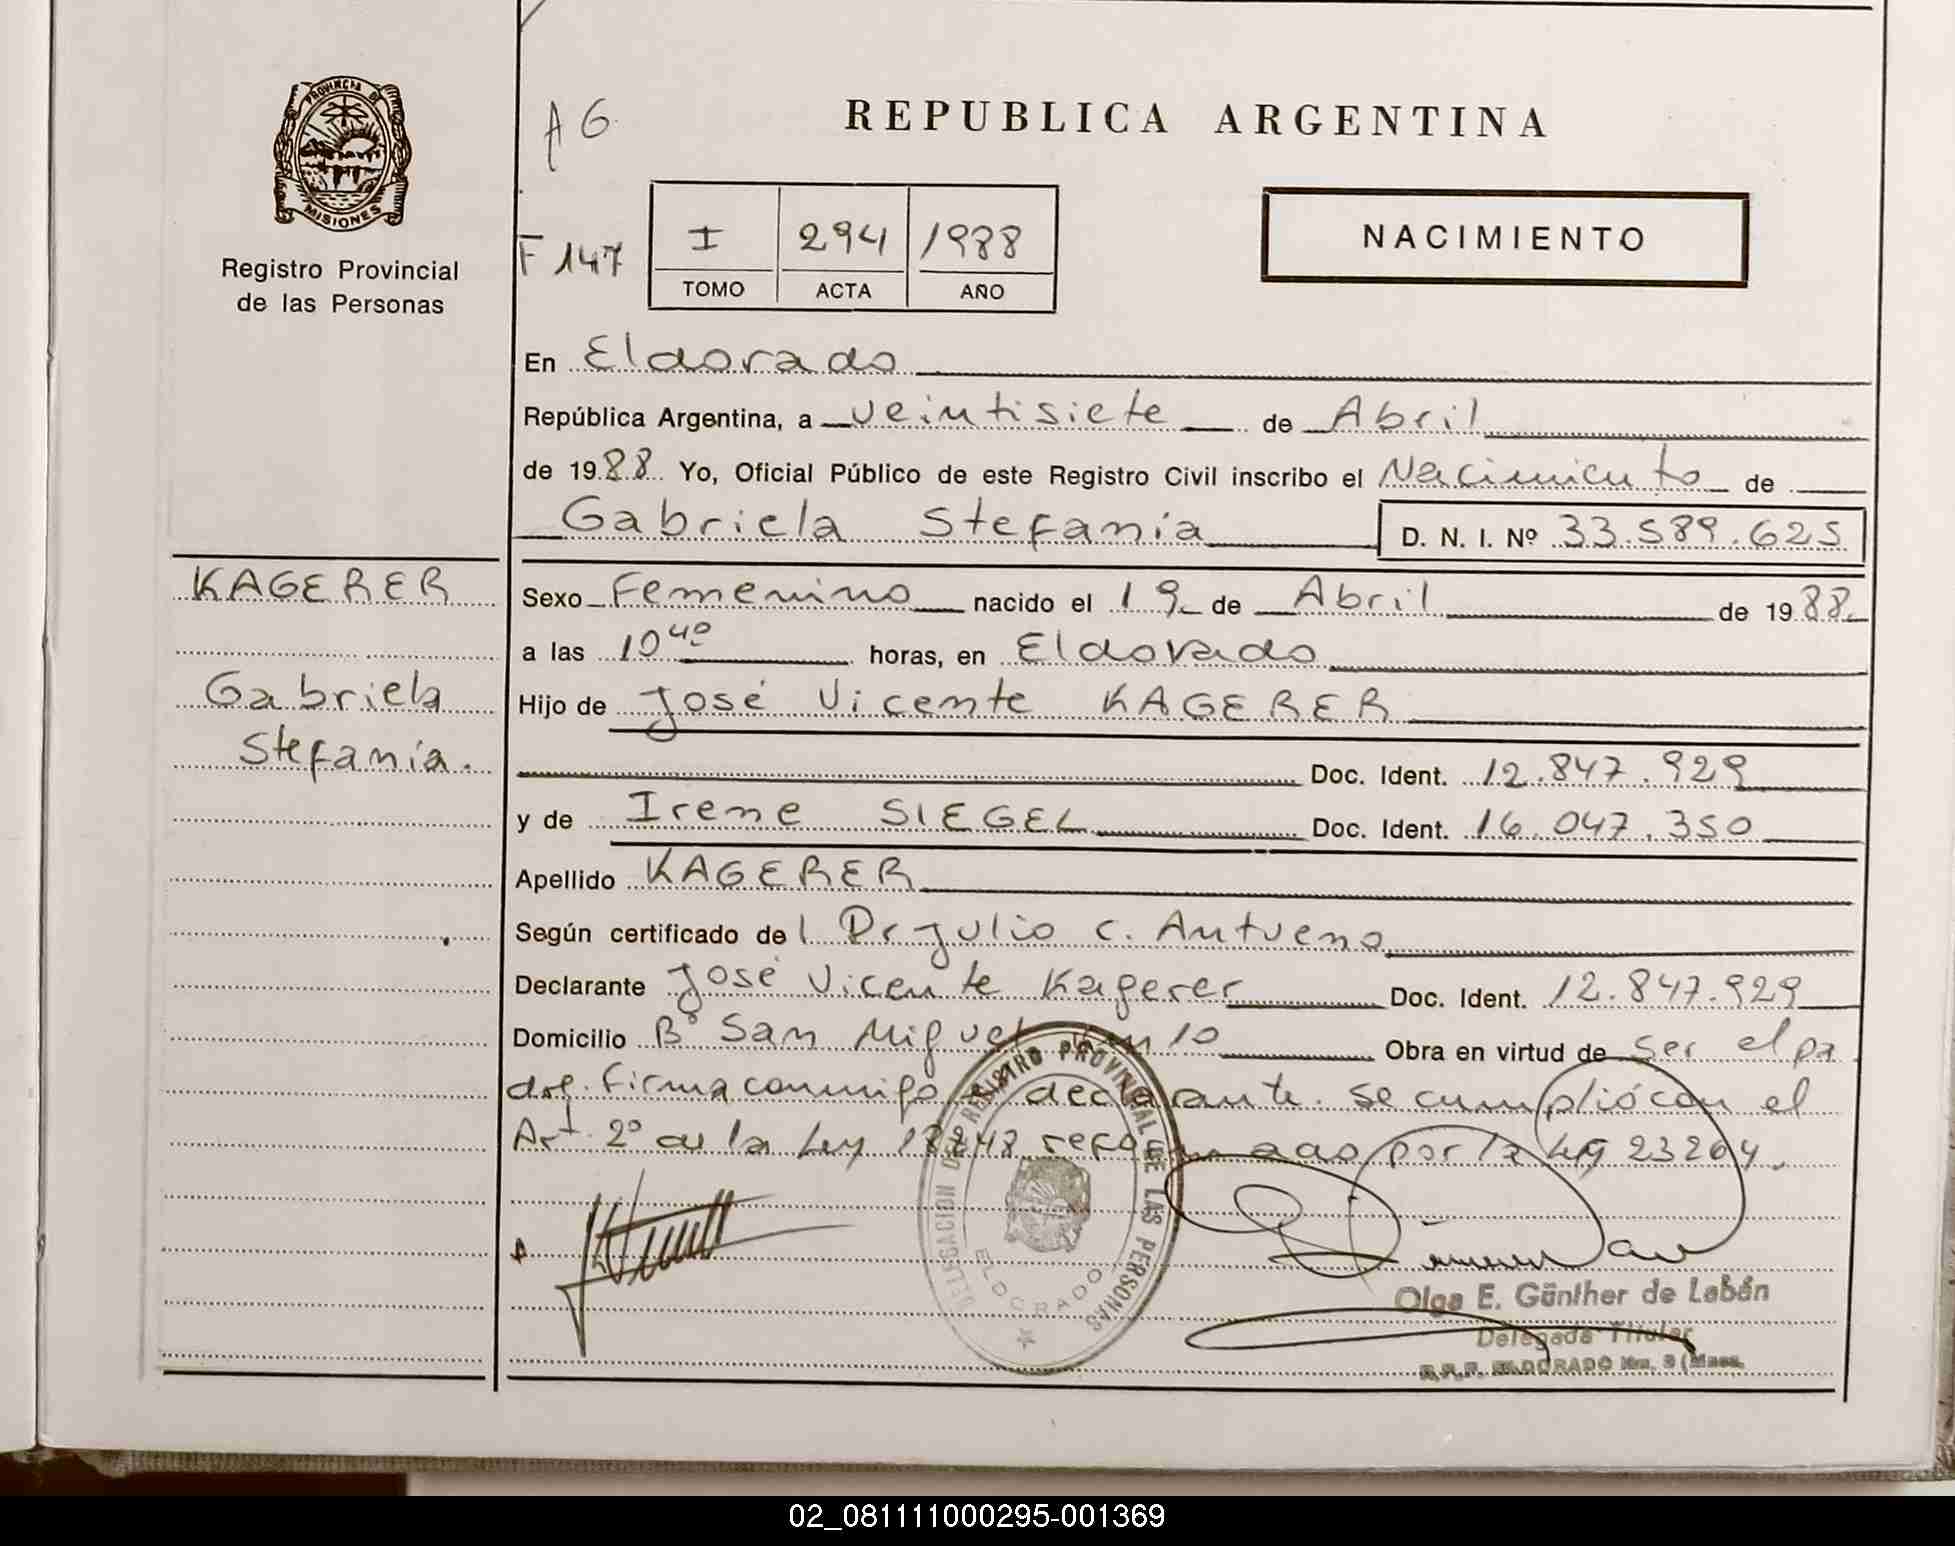 PROVINCIA DE
MISIONES
Registro Provincial
de las Personas
A 6
REPUBLICA ARGENTINA
F 147
I 294 1988
TOMO ACTA AÑO
NACIMIENTO
En Eldorado
República Argentina, a veintisiete de Abril
de 1988 Yo, Oficial Público de este Registro Civil inscribo el Nacimiento de
Gabriela Stefanía D. N. I. Nº 33.589.625
KAGERER
Gabriela
Stefanía.
Sexo Femenino nacido el 19 de Abril de 1988
a las 10 40 horas, en Eldorado
Hijo de José Vicente KAGERER
Doc. Ident. 12.847.929
y de Irene SIEGEL Doc. Ident. 16.047.350
Apellido KAGERER
Según certificado del Dr Julio C. Antueno
Declarante José Vicente Kagerer Doc. Ident. 12.847.929
Domicilio Bº San Miguel km 10 Obra en virtud de ser el pa
dre. firma conmigo el declarante. se cumplió con el
Art. 2º de la Ley 18248 reformado por la Ley 23264.
DELEGACION DEL REGISTRO PROVINCIAL DE LAS PERSONAS
ELDORADO
Olga E. Günther de Labán
Delegada Titular
R.P.P. ELDORADO Nro. 3 (Mnes.
02_081111000295-001369